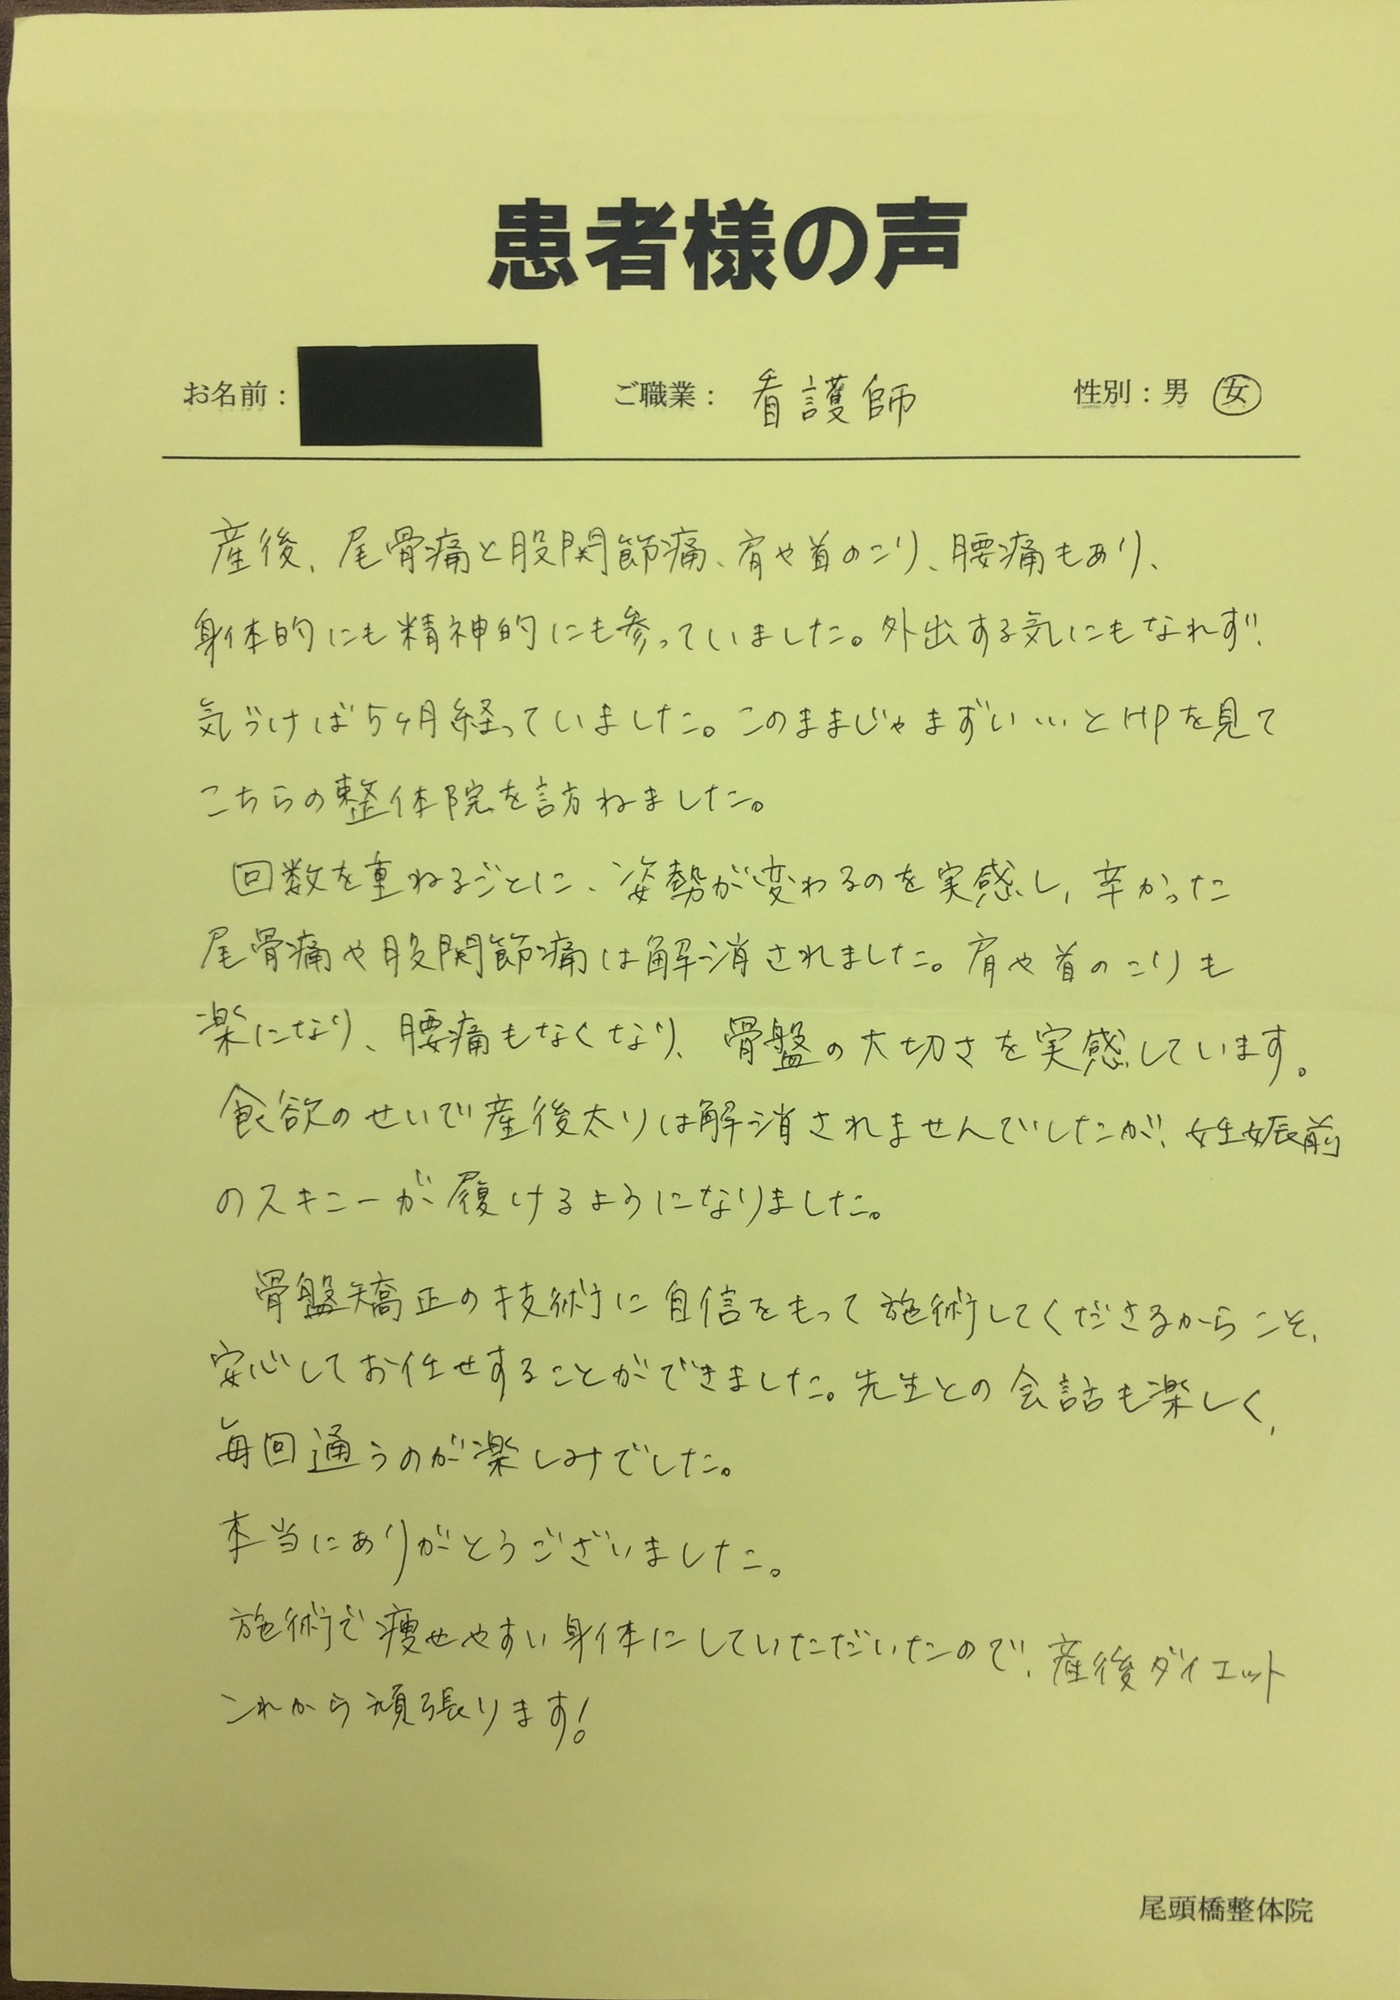 患者様の声
お名前： ご職業： 看護師 性別：男 女
産後、尾骨痛と股関節痛、肩や首のこり、腰痛もあり、
身体的にも精神的にも参っていました。外出する気にもなれず、
気づけば5ヶ月経っていました。このままじゃまずい…とHPを見て
こちらの整体院を訪ねました。
回数を重ねるごとに、姿勢が変わるのを実感し、辛かった
尾骨痛や股関節痛は解消されました。肩や首のこりも
楽になり、腰痛もなくなり、骨盤の大切さを実感しています。
食欲のせいで産後太りは解消されませんでしたが、妊娠前
のスキニーが履けるようになりました。
骨盤矯正の技術に自信をもって施術してくださるからこそ、
安心してお任せすることができました。先生との会話も楽しく、
毎回通うのが楽しみでした。
本当にありがとうございました。
施術で痩せやすい身体にしていただいたので、産後ダイエット
これから頑張ります!
尾頭橋整体院